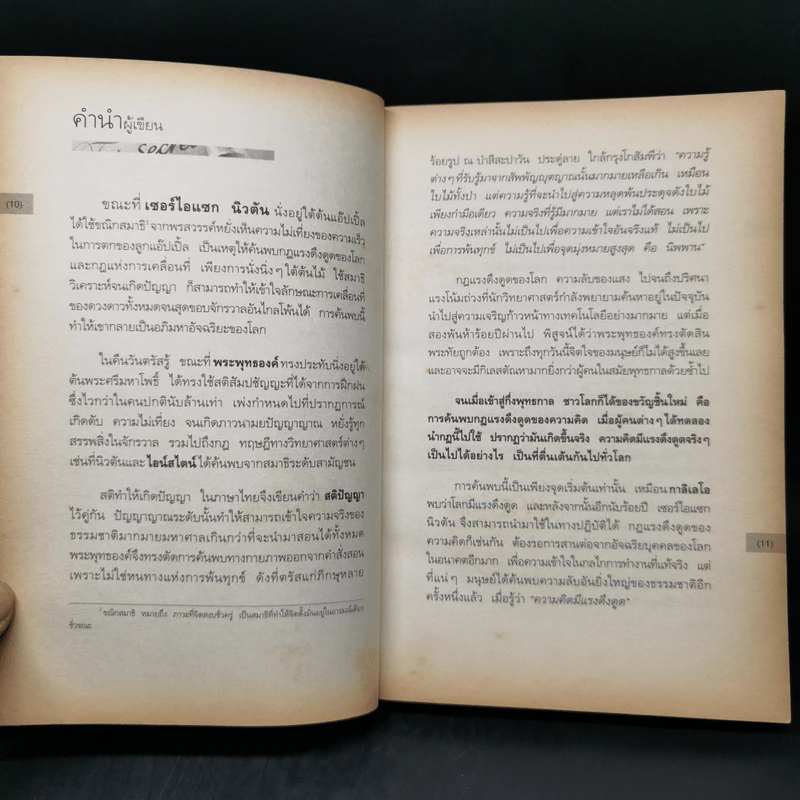 คำนำผู้เขียน
(10)
ขณะที่ เซอร์ไอแซก นิวตัน นั่งอยู่ใต้ต้นแอ๊ปเปิ้ล
ได้ใช้ขณิกสมาธิ¹ จากพรสวรรค์หยั่งเห็นความไม่เที่ยงของความเร็ว
ในการตกของลูกแอ๊ปเปิ้ล เป็นเหตุให้ค้นพบกฎแรงดึงดูดของโลก
และกฎแห่งการเคลื่อนที่ เพียงการนั่งนิ่งๆ ใต้ต้นไม้ ใช้สมาธิ
วิเคราะห์จนเกิดปัญญา ก็สามารถทำให้เข้าใจลักษณะการเคลื่อนที่
ของดวงดาวทั้งหมดจนสุดขอบจักรวาลอันไกลโพ้นได้ การค้นพบนี้
ทำให้เขากลายเป็นอภิมหาอัจฉริยะของโลก
ในคืนวันตรัสรู้ ขณะที่ พระพุทธองค์ ทรงประทับนั่งอยู่ใต้
ต้นพระศรีมหาโพธิ์ ได้ทรงใช้สติสัมปชัญญะที่ได้จากการฝึกฝน
ซึ่งไวกว่าในคนปกตินับล้านเท่า เพ่งกำหนดไปที่ปรากฏการณ์
เกิดดับ ความไม่เที่ยง จนเกิดภาวนามยปัญญาญาณ หยั่งรู้ทุก
สรรพสิ่งในจักรวาล รวมไปถึงกฎ ทฤษฎีทางวิทยาศาสตร์ต่างๆ
เช่นที่นิวตันและ ไอน์สไตน์ ได้ค้นพบจากสมาธิระดับสามัญชน
สติทำให้เกิดปัญญา ในภาษาไทยจึงเขียนคำว่า สติปัญญา
ไว้คู่กัน ปัญญาญาณระดับนั้นทำให้สามารถเข้าใจความจริงของ
ธรรมชาติมากมายมหาศาลเกินกว่าที่จะนำมาสอนได้ทั้งหมด
พระพุทธองค์จึงทรงตัดการค้นพบทางกายภาพออกจากคำสั่งสอน
เพราะไม่ใช่หนทางแห่งการพ้นทุกข์ ดังที่ตรัสแก่ภิกษุหลาย
¹ ขณิกสมาธิ หมายถึง ภาวะที่จิตสงบชั่วครู่ เป็นสมาธิที่ทำให้จิตตั้งมั่นอยู่ในอารมณ์เดียว
ชั่วขณะ
ร้อยรูป ณ ป่าสีสะปาวัน ประดู่ลาย ใกล้กรุงโกสัมพีว่า "ความรู้
ต่างๆ ที่รับรู้มาจากสัพพัญญุตญาณนั้นมากมายเหลือเกิน เหมือน
ใบไม้ทั้งป่า แต่ความรู้ที่จะนำไปสู่ความหลุดพ้นประดุจดังใบไม้
เพียงกำมือเดียว ความจริงที่รู้มีมากมาย แต่เราไม่ได้สอน เพราะ
ความจริงเหล่านั้นไม่เป็นไปเพื่อความเข้าใจอันจริงแท้ ไม่เป็นไป
เพื่อการพ้นทุกข์ ไม่เป็นไปเพื่อจุดมุ่งหมายสูงสุด คือ นิพพาน"
กฎแรงดึงดูดของโลก ความลับของแสง ไปจนถึงปริศนา
แรงโน้มถ่วงที่นักวิทยาศาสตร์กำลังพยายามค้นหาอยู่ในปัจจุบัน
นำไปสู่ความเจริญก้าวหน้าทางเทคโนโลยีอย่างมากมาย แต่เมื่อ
สองพันห้าร้อยปีผ่านไป พิสูจน์ได้ว่าพระพุทธองค์ทรงตัดสิน
พระทัยถูกต้อง เพราะถึงทุกวันนี้จิตใจของมนุษย์ก็ไม่ได้สูงขึ้นเลย
และอาจจะมีกิเลสตัณหามากยิ่งกว่าผู้คนในสมัยพุทธกาลด้วยซ้ำไป
จนเมื่อเข้าสู่กึ่งพุทธกาล ชาวโลกก็ได้ของขวัญชิ้นใหม่ คือ
การค้นพบกฎแรงดึงดูดของความคิด เมื่อผู้คนต่างๆ ได้ทดลอง
นำกฎนี้ไปใช้ ปรากฏว่ามันเกิดขึ้นจริง ความคิดมีแรงดึงดูดจริงๆ
เป็นไปได้อย่างไร เป็นที่ตื่นเต้นกันไปทั่วโลก
การค้นพบนี้เป็นเพียงจุดเริ่มต้นเท่านั้น เหมือน กาลิเลโอ
พบว่าโลกมีแรงดึงดูด และหลังจากนั้นอีกนับร้อยปี เซอร์ไอแซก
นิวตัน จึงสามารถนำมาใช้ในทางปฏิบัติได้ กฎแรงดึงดูดของ
ความคิดก็เช่นกัน ต้องรอการสานต่อจากอัจฉริยบุคคลของโลก
ในอนาคตอีกมาก เพื่อความเข้าใจในกลไกการทำงานที่แท้จริง แต่
ที่แน่ๆ มนุษย์ได้ค้นพบความลับอันยิ่งใหญ่ของธรรมชาติอีก
ครั้งหนึ่งแล้ว เมื่อรู้ว่า "ความคิดมีแรงดึงดูด"
(11)